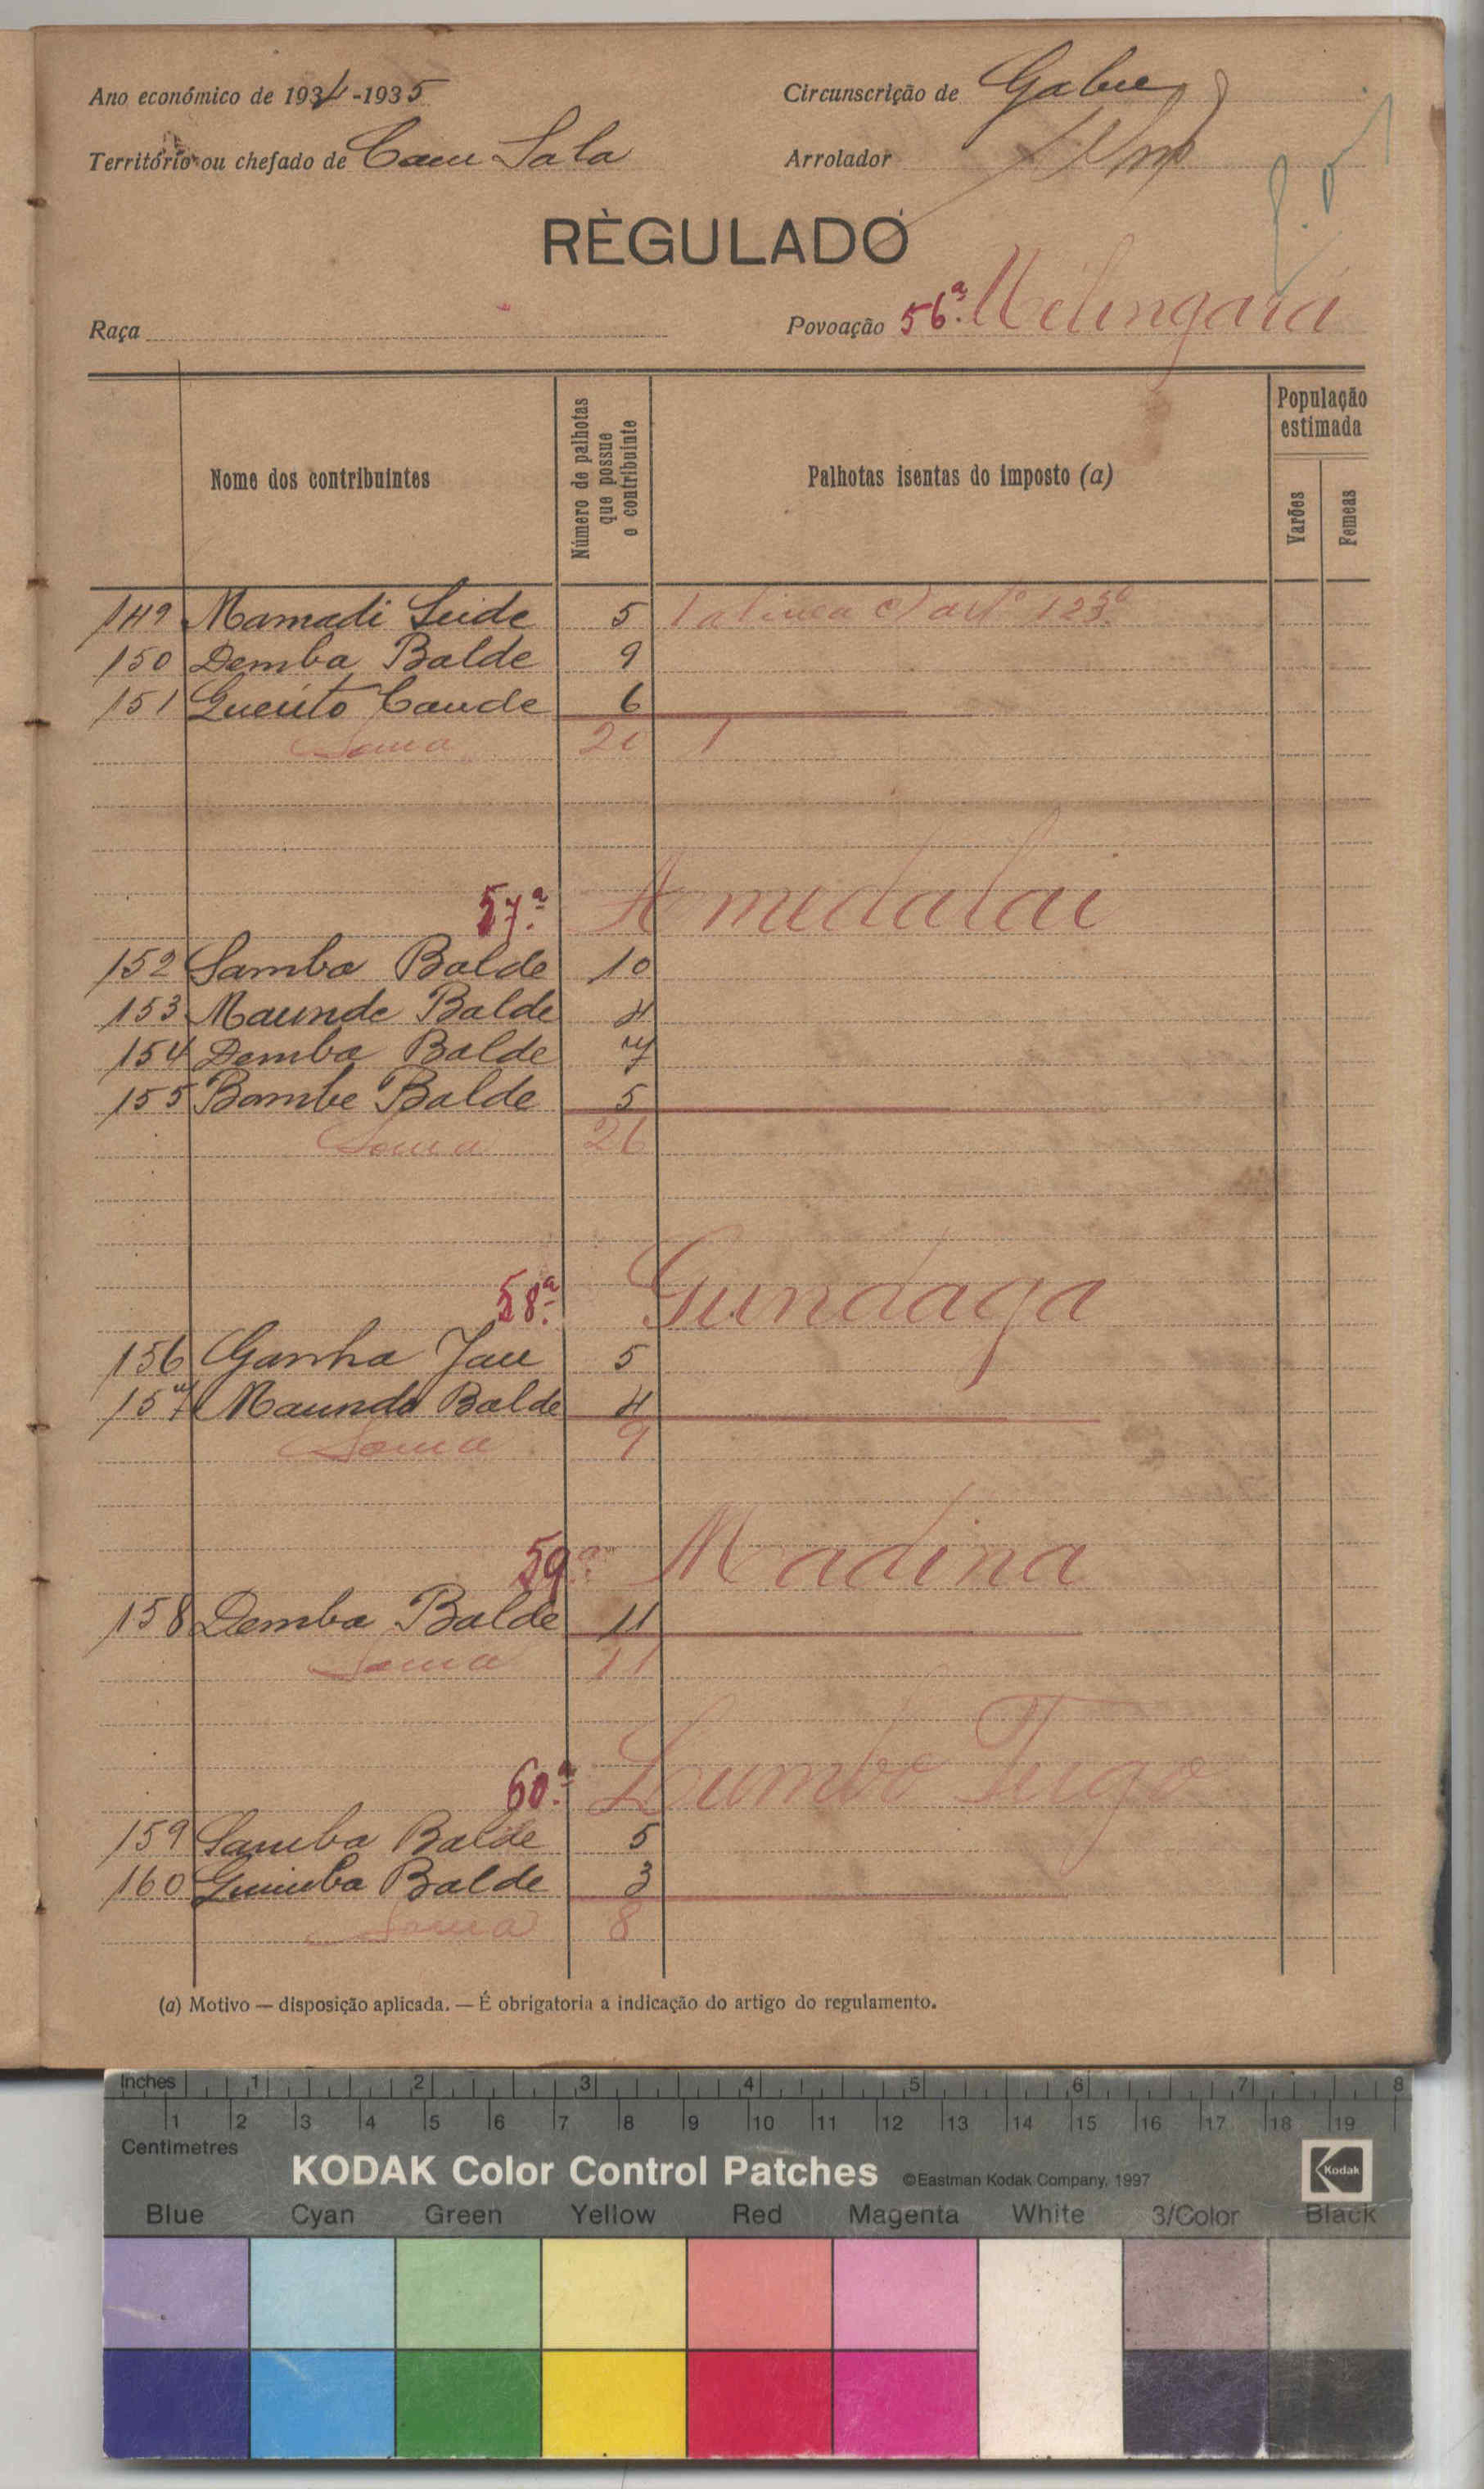 Ano económico de 1934-1935
Circunscrição de Gabu
Território ou chefado de Caeu Sala
Arrolador
RÈGULADO
Raça
Povoação 56.ª Velingará
Nome dos contribuintes
Número de palhotas que possue o contribuinte
Palhotas isentas do imposto (a)
População estimada
Varões
Femeas
149 Mamadi Seide 5 1 alinea c) artº 123º
150 Demba Balde 9
151 Baude 6
Soma 20 1
57.ª Amedalai
152 Samba Balde 10
153 Maunde Balde 4
154 Demba Balde 7
155 Bombe Balde 5
Soma 26
58.ª Gundaga
156 Ganha Jau 5
157 Maunde Balde 4
Soma 9
59.ª Madina
158 Demba Balde 11
Soma 11
60.ª Lumbo Tugo
159 Samba Balde 5
160 Guimba Balde 3
Soma 8
(a) Motivo — disposição aplicada. — É obrigatoria a indicação do artigo do regulamento.
Inches 1 2 3 4 5 6 7 8
1 2 3 4 5 6 7 8 9 10 11 12 13 14 15 16 17 18 19
Centimetres
KODAK Color Control Patches ©Eastman Kodak Company, 1997 Kodak
Blue Cyan Green Yellow Red Magenta White 3/Color Black